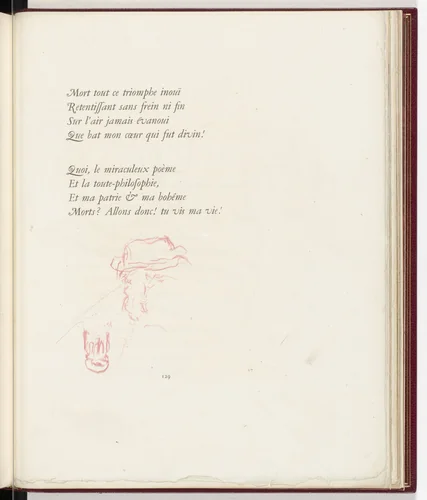 Mort tout ce triomphe inouï
Retentiſſant sans frein ni fin
Sur l'air jamais évanoui
Que bat mon cœur qui fut divin!
Quoi, le miraculeux poème
Et la toute-philoſophie,
Et ma patrie & ma bohême
Morts? Allons donc! tu vis ma vie!
129